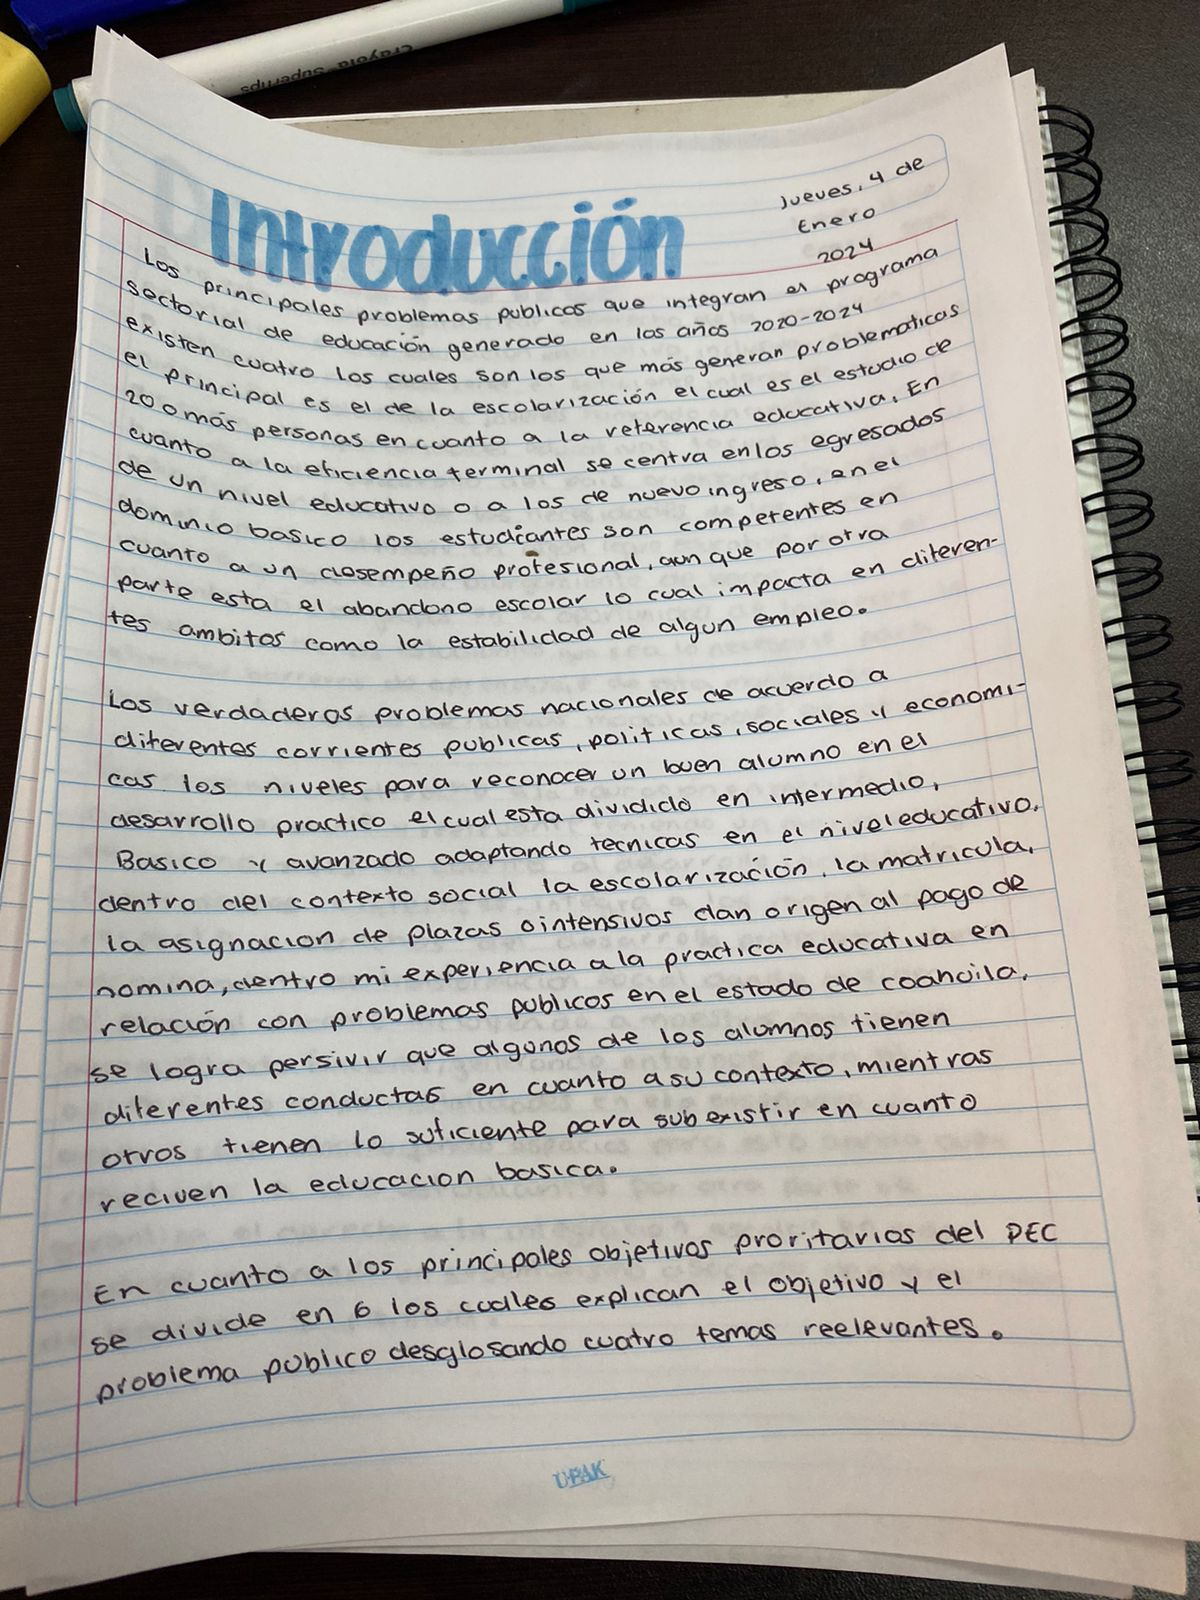 Crayola Supertips
Introducción
Jueves, 4 de
Enero
2024
Los principales problemas publicos que integran el programa
sectorial de educación generado en los años 2020-2024
existen cuatro los cuales son los que más generan problematicas
el principal es el de la escolarización el cual es el estudio de
20 o más personas en cuanto a la referencia educativa. En
cuanto a la eficiencia terminal se centra en los egresados
de un nivel educativo o a los de nuevo ingreso, en el
dominio basico los estudiantes son competentes en
cuanto a un desempeño profesional, aun que por otra
parte esta el abandono escolar lo cual impacta en diferen-
tes ambitos como la estabilidad de algun empleo.
Los verdaderos problemas nacionales de acuerdo a
diferentes corrientes publicas, politicas, sociales y economi-
cas los niveles para reconocer un buen alumno en el
desarrollo practico el cual esta dividido en intermedio,
Basico y avanzado adaptando tecnicas en el nivel educativo.
dentro del contexto social la escolarización, la matricula,
la asignacion de plazas o intensivos dan origen al pago de
nomina, dentro mi experiencia a la practica educativa en
relación con problemas publicos en el estado de coahuila,
se logra persivir que algunos de los alumnos tienen
diferentes conductas en cuanto a su contexto, mientras
otros tienen lo suficiente para subexistir en cuanto
reciven la educacion basica.
En cuanto a los principales objetivos proritarios del PEC
se divide en 6 los cuales explican el objetivo y el
problema publico desglosando cuatro temas reelevantes.
UPAK